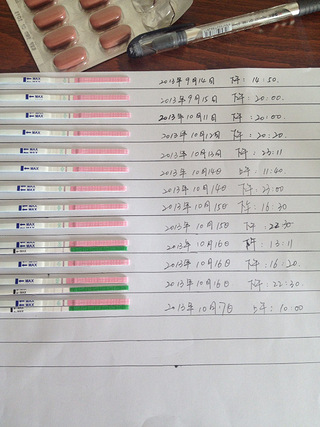 MAX 2013年9月14日 下午: 14:50.
MAX 2013年9月15日 下午: 20:00.
MAX 2013年10月11日 下午: 20:00.
MAX 2013年10月12日 下午: 20:20
MAX 2013年10月13日 下午: 23:11
MAX 2013年10月14日 上午: 11:40
MAX 2013年10月14日 下午: 23:00
MAX 2013年10月15日 下午: 16:30
MAX 2013年10月15日 下午: 22:30
MAX 2013年10月16日 下午: 13:11
MAX 2013年10月16日 下午: 16:20.
MAX 2013年10月16日 下午: 22:30.
MAX 2013年10月17日 上午: 10:00